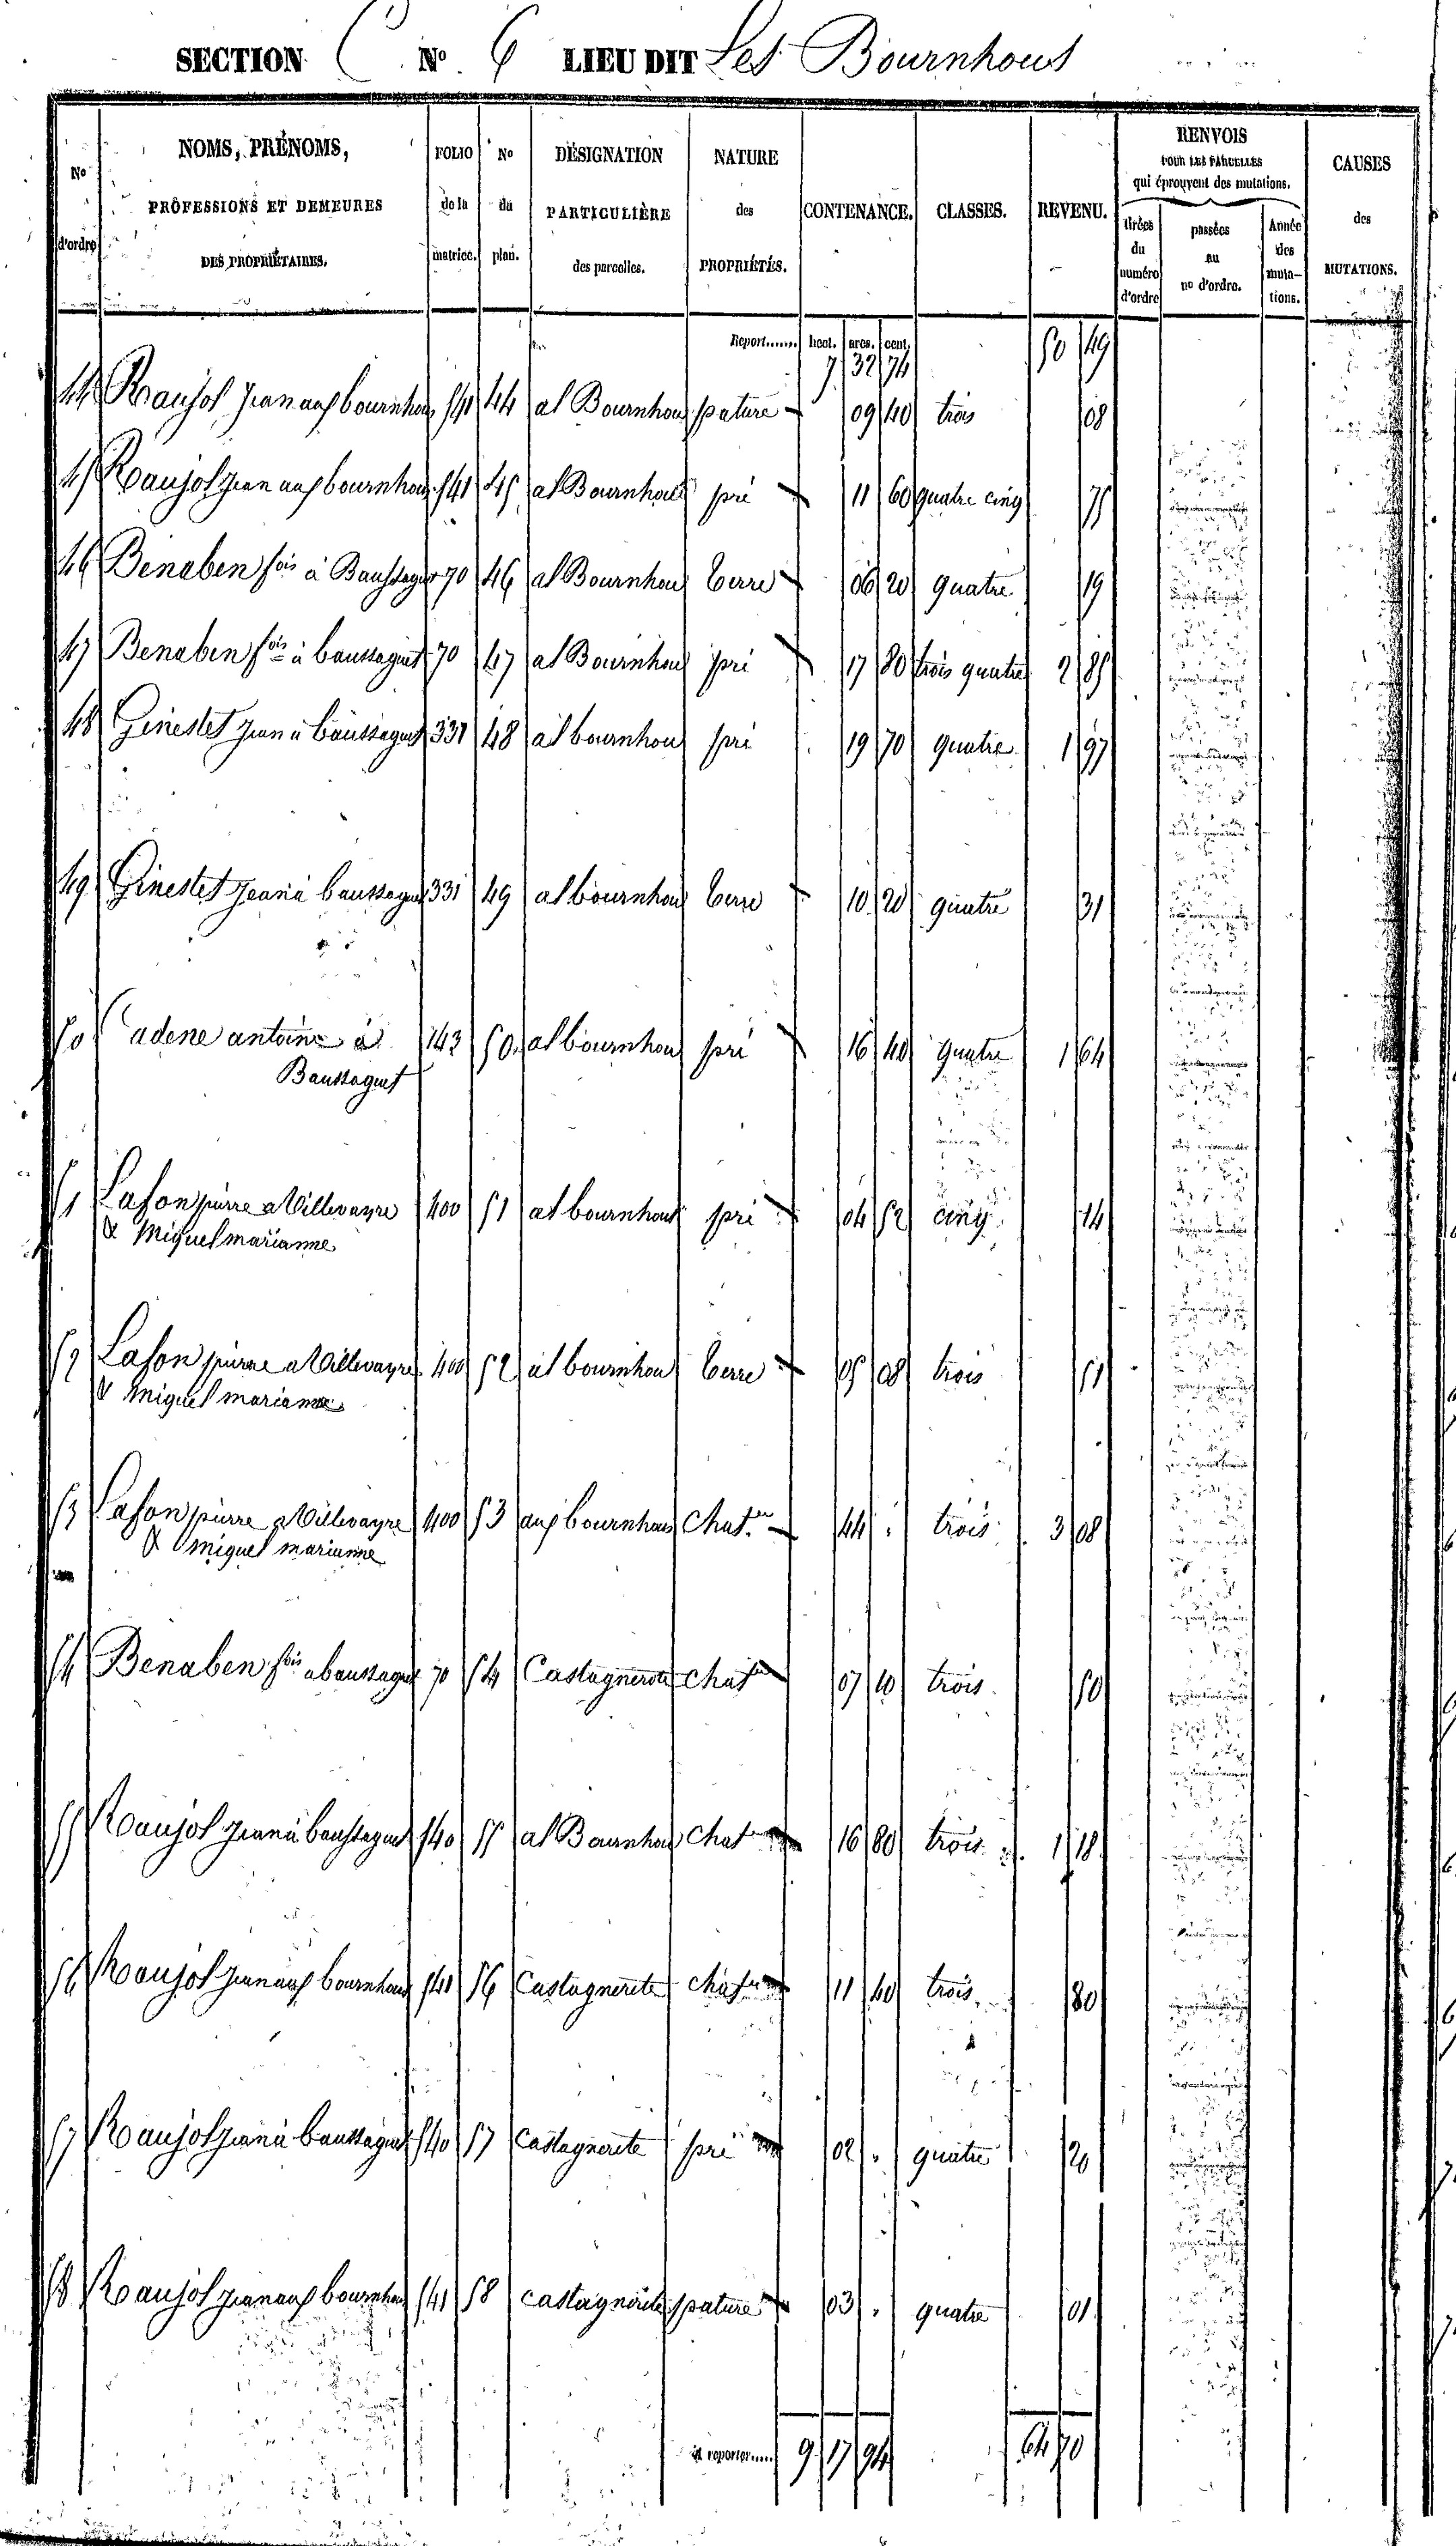 SECTION C No 6 LIEU DIT Les Bournhous
No d'ordre | NOMS, PRÉNOMS, PROFESSIONS ET DEMEURES DES PROPRIÉTAIRES. | FOLIO de la matrice. | No du plan. | DÉSIGNATION PARTICULIÈRE des parcelles. | NATURE des PROPRIÉTÉS. | CONTENANCE. | CLASSES. | REVENU. | RENVOIS POUR LES PARCELLES qui éprouvent des mutations. | tirées du numéro d'ordre | passées au no d'ordre. | Année des muta-tions. | CAUSES des MUTATIONS.
Report....... hect. ares. cent.
7 32 74 50 49
44 Raujol jean aux bournhous 541 44 al Bournhous pature 09 40 trois 08
45 Raujol jean aux bournhous 541 45 al Bournhous pré 11 60 quatre cinq 75
46 Benaben fois à Baussaguet 70 46 al Bournhous terre 06 20 quatre 19
47 Benaben fois à baussaguet 70 47 al Bournhous pré 17 80 trois quatre 2 85
48 Ginestet jean à baussaguet 331 48 al bournhous pré 19 70 quatre 1 97
49 Ginestet jean à baussaguet 331 49 al bournhous terre 10 20 quatre 31
50 Cadene antoine à 143 50 al bournhous pré 16 40 quatre 1 64
Baussaguet
51 Lafon pierre a Villevayre 400 51 al bournhous pré 04 52 cinq 14
& Miquel marianne
52 Lafon pierre a Villevayre 400 52 al bournhous terre 05 08 trois 51
& Miquel marianne
53 Lafon pierre a Villevayre 400 53 aux bournhous Chat.er 44 " trois 3 08
& Miquel marianne
54 Benaben fois a baussaguet 70 54 Castagnerete chater 07 10 trois 50
55 Raujol jean à baussaguet 540 55 al Bournhous Chater 16 80 trois 1 18
56 Raujol jean aux bournhous 541 56 Castagnerete chater 11 40 trois 80
57 Raujol jean à baussaguet 540 57 castagnerete pré 02 " quatre 20
58 Raujol jean aux bournhous 541 58 castagnerete pature 03 " quatre 01
à reporter..... 9 17 94 64 70